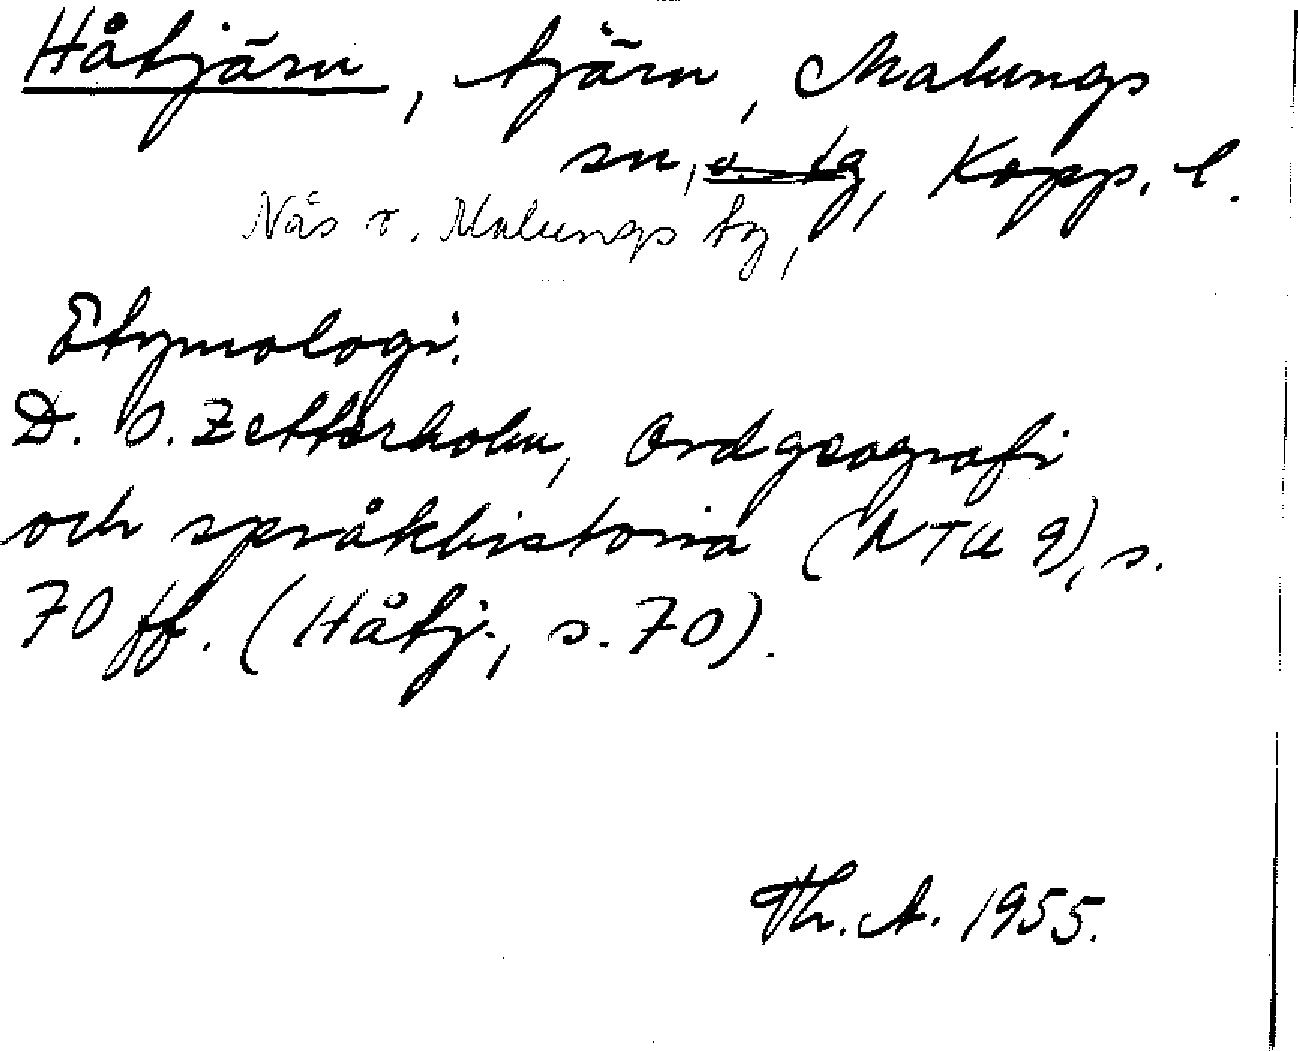 Håtjärn, tjärn, Malungs
sn, o. tg, Kopp. l.
Nås o. Malungs tg,
Etymologi:
D. O. Zetterholm, Ordgeografi
och språkhistoria (NTU 9), s.
70 ff. (Håtj-, s. 70).
Th. A. 1955.